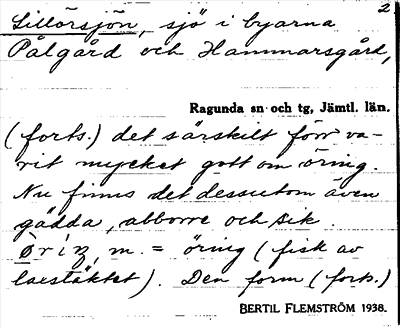 2
Lillörsjön, sjö i byarna
Pålgård och Hammarsgård,
Ragunda sn och tg, Jämtl. län.
(forts.) det särskilt förr va-
rit mycket gott om öring.
Nu finns det dessutom även
gädda, abborre och sik.
m. = öring (fisk av
laxsläktet). Den form (forts.)
BERTIL FLEMSTRÖM 1938.